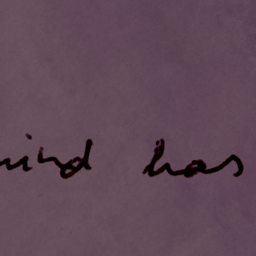 ind has